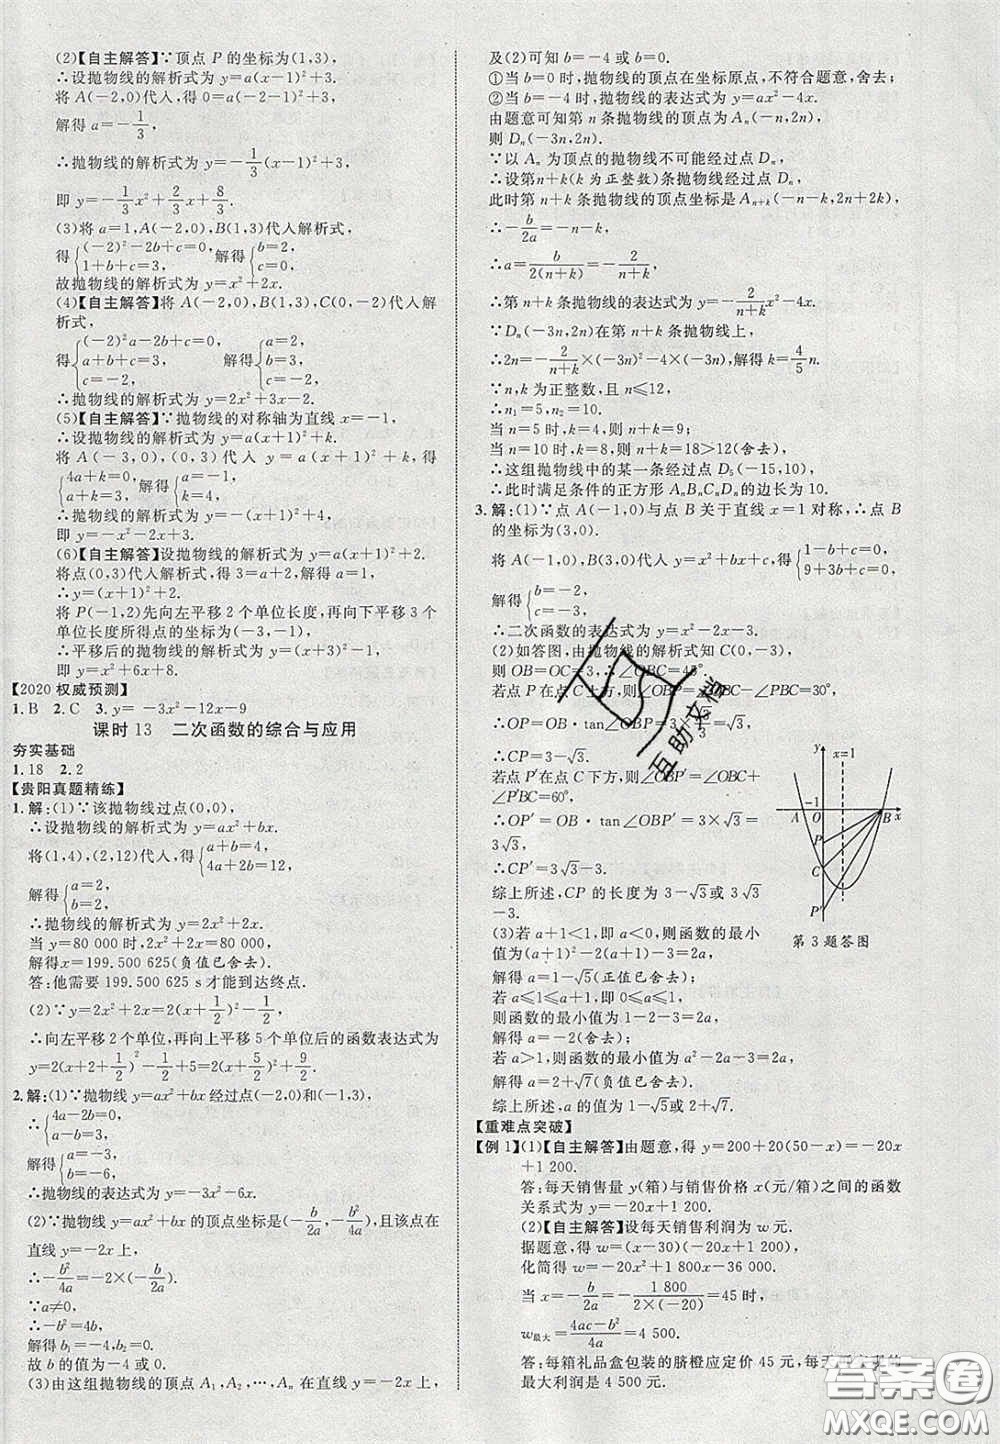 (2)【自主解答】∵顶点 P 的坐标为(1,3),
∴设抛物线的解析式为 y=a(x-1)²+3.
将 A(-2,0)代入,得 0=a(-2-1)²+3,
解得 a=-1/3,
∴抛物线的解析式为 y=-1/3(x-1)²+3,
即 y=-1/3x²+2/3x+8/3.
(3)将 a=1,A(-2,0),B(1,3)代入解析式,
得{(-2)²-2b+c=0, 1+b+c=3, 解得{b=2, c=0.
故抛物线的解析式为 y=x²+2x.
(4)【自主解答】将 A(-2,0),B(1,3),C(0,-2)代入解
析式,
得{(-2)²a-2b+c=0, a+b+c=3, c=-2, 解得{a=2, b=3, c=-2,
∴抛物线的解析式为 y=2x²+3x-2.
(5)【自主解答】∵抛物线的对称轴为直线 x=-1,
∴设抛物线的解析式为 y=a(x+1)²+k.
将 A(-3,0),(0,3)代入 y=a(x+1)²+k,得
{4a+k=0, a+k=3, 解得{a=-1, k=4.
∴抛物线的解析式为 y=-(x+1)²+4,
即 y=-x²-2x+3.
(6)【自主解答】设抛物线的解析式为 y=a(x+1)²+2.
将点(0,3)代入解析式,得 3=a+2,解得 a=1,
∴y=(x+1)²+2.
将 P(-1,2)先向左平移 2 个单位长度,再向下平移 3 个
单位长度所得点的坐标为(-3,-1),
∴平移后的抛物线的解析式为 y=(x+3)²-1,
即 y=x²+6x+8.
【2020 权威预测】
1.B 2.C 3.y=-3x²-12x-9
课时 13 二次函数的综合与应用
夯实基础
1.18 2.2
【贵阳真题精练】
1.解:(1)∵该抛物线过点(0,0),
∴设抛物线的解析式为 y=ax²+bx.
将(1,4),(2,12)代入,得{a+b=4, 4a+2b=12,
解得{a=2, b=2,
∴抛物线的解析式为 y=2x²+2x.
当 y=80 000 时,2x²+2x=80 000,
解得x=199.500 625(负值已舍去),
答:他需要 199.500 625 s才能到达终点.
(2)∵y=2x²+2x=2(x+1/2)²-1/2,
∴向左平移2个单位,再向上平移5个单位后的函数表达式为
y=2(x+2+1/2)²-1/2+5=2(x+5/2)²+9/2.
2.解:(1)∵抛物线y=ax²+bx经过点(-2,0)和(-1,3),
∴{4a-2b=0, a-b=3,
解得{a=-3, b=-6,
∴抛物线的表达式为 y=-3x²-6x.
(2)∵抛物线 y=ax²+bx的顶点坐标是(-b/2a,-b²/4a),且该点在
直线 y=-2x 上,
∴-b²/4a=-2×(-b/2a).
∵a≠0,
∴-b²=4b,
解得 b₁=-4,b₂=0.
故 b 的值为-4或 0.
(3)由这组抛物线的顶点 A₁,A₂,…,Aₙ在直线 y=-2x 上,
及(2)可知 b=-4 或 b=0.
①当 b=0时,抛物线的顶点在坐标原点,不符合题意,舍去;
②当 b=-4 时,抛物线的表达式为 y=ax²-4x.
由题意可知第 n 条抛物线的顶点为 Aₙ(-n,2n),
则 Dₙ(-3n,2n).
∵以 Aₙ 为顶点的抛物线不可能经过点 Dₙ,
∴设第n+k(k 为正整数)条抛物线经过点 Dₙ,
此时第 n+k 条抛物线的顶点坐标是Aₙ₊ₖ(-n-k,2n+2k),
∴-b/2a=-n-k,
∴a=b/2(n+k)=-2/n+k,
∴第 n+k 条抛物线的表达式为 y=-2/n+k x²-4x.
∵Dₙ(-3n,2n)在第 n+k 条抛物线上,
∴2n=-2/n+k×(-3n)²-4×(-3n),解得 k=4/5 n.
∵n,k 为正整数,且 n≤12,
∴n₁=5,n₂=10.
当 n=5 时,k=4,则 n+k=9;
当 n=10 时,k=8,则 n+k=18>12(舍去),
∴这组抛物线中的某一条经过点 D₅(-15,10),
∴此时满足条件的正方形 AₙBₙCₙDₙ的边长为 10.
3.解:(1)∵点 A(-1,0)与点 B 关于直线 x=1 对称,∴点 B
的坐标为(3,0).
将 A(-1,0),B(3,0)代入 y=x²+bx+c,得{1-b+c=0, 9+3b+c=0,
解得{b=-2, c=-3,
∴二次函数的表达式为 y=x²-2x-3.
(2)如答图,由抛物线的解析式知 C(0,-3),
则 OB=OC=3,∴∠OBC=45°.
若点P在点C上方,则∠OBP=∠OBC-∠PBC=30°,
∴OP=OB·tan∠OBP=3×√3/3=√3,
∴CP=3-√3.
若点P′在点 C下方,则∠OBP′=∠OBC+
∠P′BC=60°,
∴OP′=OB·tan∠OBP′=3×√3=3√3,
∴CP′=3√3-3.
综上所述,CP 的长度为 3-√3或 3√3
-3.
(3)若 a+1<1,即a<0,则函数的最小
值为(a+1)²-2(a+1)-3=2a,
解得 a=1-√5(正值已舍去);
若 a≤1≤a+1,即 0≤a≤1,
则函数的最小值为 1-2-3=2a,
解得 a=-2(舍去);
若 a>1,则函数的最小值为 a²-2a-3=2a,
解得 a=2+√7(负值已舍去).
综上所述,a 的值为 1-√5或 2+√7.
x=1
-1
A O B x
P
C
P′
第 3 题答图
【重难点突破】
【例 1】(1)【自主解答】由题意,得 y=200+20(50-x)=-20x
+1 200.
答:每天销售量 y(箱)与销售价格 x(元/箱)之间的函数
关系式为 y=-20x+1 200.
(2)【自主解答】设每天销售利润为 w元.
据题意,得 w=(x-30)(-20x+1 200),
化简得 w=-20x²+1 800x-36 000.
当 x=-b/2a=-1 800/2×(-20)=45 时,
w最大=4ac-b²/4a=4 500.
答:每箱礼品盒包装的脐橙应定价 45 元,每天
最大利润是 4 500 元.
互助文档
答案圈
MXQE.COM